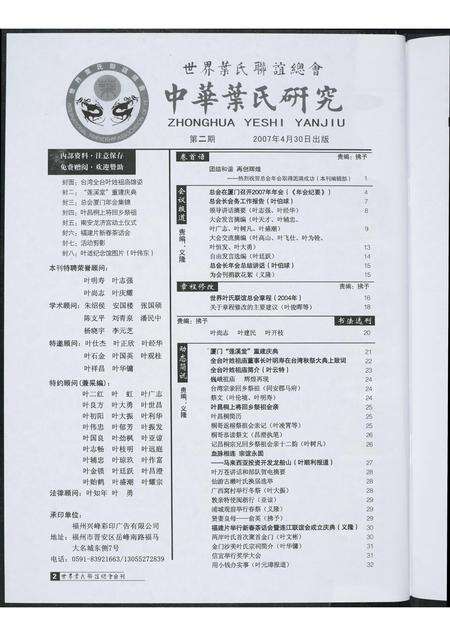 世界葉氏聯誼總會
中華葉氏研究
ZHONGHUA YESHI YANJIU
第二期 2007年4月30日出版
内部资料·注意保存
免费赠阅·欢迎赞助
封面：台湾全台叶姓祖庙雄姿
封二："莲溪堂"重建庆典
封三：总会厦门年会集锦
封四：叶昌桐上将回乡祭祖
封五：南安龙济宫动土仪式
封六：福建片新春茶话会
封七：活动剪影
封八：叶适纪念馆图片（叶伟东）
本刊特聘荣誉顾问：
叶明寿 叶志强
叶尚志 叶庆耀
学术顾问：朱绍侯 安国楼 张国硕
陈支平 刘青泉 潘民中
杨晓宇 李元芝
特邀顾问：叶仕杰 叶正欣 叶经华
叶石金 叶国英 叶观桂
叶祥昌 叶华镛
特约顾问(兼采编)：
叶二红 叶虹 叶广志
叶良方 叶大勇 叶世昌
叶初阳 叶大振 叶利华
叶伟忠 叶郁芳 叶振发
叶国良 叶劲枫 叶亚谅
叶志畅 叶枝明 叶远庭
叶辅忠 叶琼玖 叶作富
叶金锁 叶廷跃 叶昌澄
叶始鹤 叶盛潮 叶耀宗
法律顾问：叶知年 叶勇
承印单位：
福州兴峰彩印广告有限公司
地址：福州市晋安区岳峰南路福马
大名城东侧7号
电话：0591-83921663/13055272839
2 世界葉氏聯誼總會會刊
卷首语 责编：拂予
团结和谐 再创辉煌
——热烈祝贺总会年会取得圆满成功（本刊编辑部） 1
会议报道
责编：义隆
总会在厦门召开2007年年会（《年会纪要》） 4
总会长会务工作报告（叶伯球） 7
领导讲话摘要（叶志强、叶经华） 8
大会发言摘编（叶天才、叶辅忠、
叶广志、叶树凡、叶盛潮） 9
大会交流摘编（叶高山、叶飞仕、叶为铨、
叶恒发、叶大勇） 13
自由发言选编（叶廷跃） 14
总会长年会总结讲话（叶伯球） 15
为会刊捐款花絮（义隆） 15
章程修改 责编：拂予
世界叶氏联谊总会章程（2004年） 16
关于章程修改的主要建议（叶俊晖等） 18
责编：拂予 书法选刊
叶尚志 叶建民 叶开枝 20
动态简说
责编：义隆
厦门"莲溪堂"重建庆典 21
全台叶姓祖庙董事长叶明寿在台湾秋祭大典上致词 22
全台叶姓祖庙简介（叶云特） 23
巍峨祖庙 辉煌再现 24
台湾宗亲回乡祭祖（同安郡马府） 24
祭文（叶伦境、叶明寿） 24
叶昌桐上将回乡祭祖会亲 25
叶昌桐简历 25
桐哥返榕祭祖会亲记（叶凌霄等） 25
桐哥恭读祭文（昌澄执笔） 26
记昌桐宗兄回乡祭祖会亲十二韵（叶树凡） 26
血脉相连 宗谊永固
——马来西亚投资开发龙胎山（叶顺利报道） 27
叶万苍讲话和部队贺电摘要 28
仙游古濑叶氏换届选举 28
广西窝村举行冬祭（叶大振） 28
敦亲特使闽旅行（亚谅） 29
浦城观前举行春祭（义隆） 29
贤妻良母——俞英（拂予） 29
福建片举行新春茶话会暨连江联谊会成立庆典（义隆） 30
两岸叶氏首次冀首金门（叶文彬） 30
金门沙美叶氏宗祠简介（叶华镛） 31
信宜举行奖学大会 31
用小钱办实事（叶元璋报道） 32